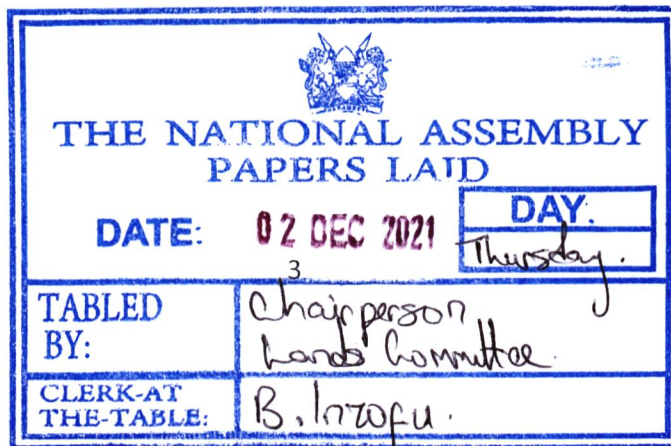 THE NATIONAL ASSEMBLY
PAPERS LAID
DATE: 02 DEC 2021
DAY.
Thursday.
3
TABLED BY:
Chairperson
Lands Committee
CLERK-AT THE-TABLE:
B. Inzofu.